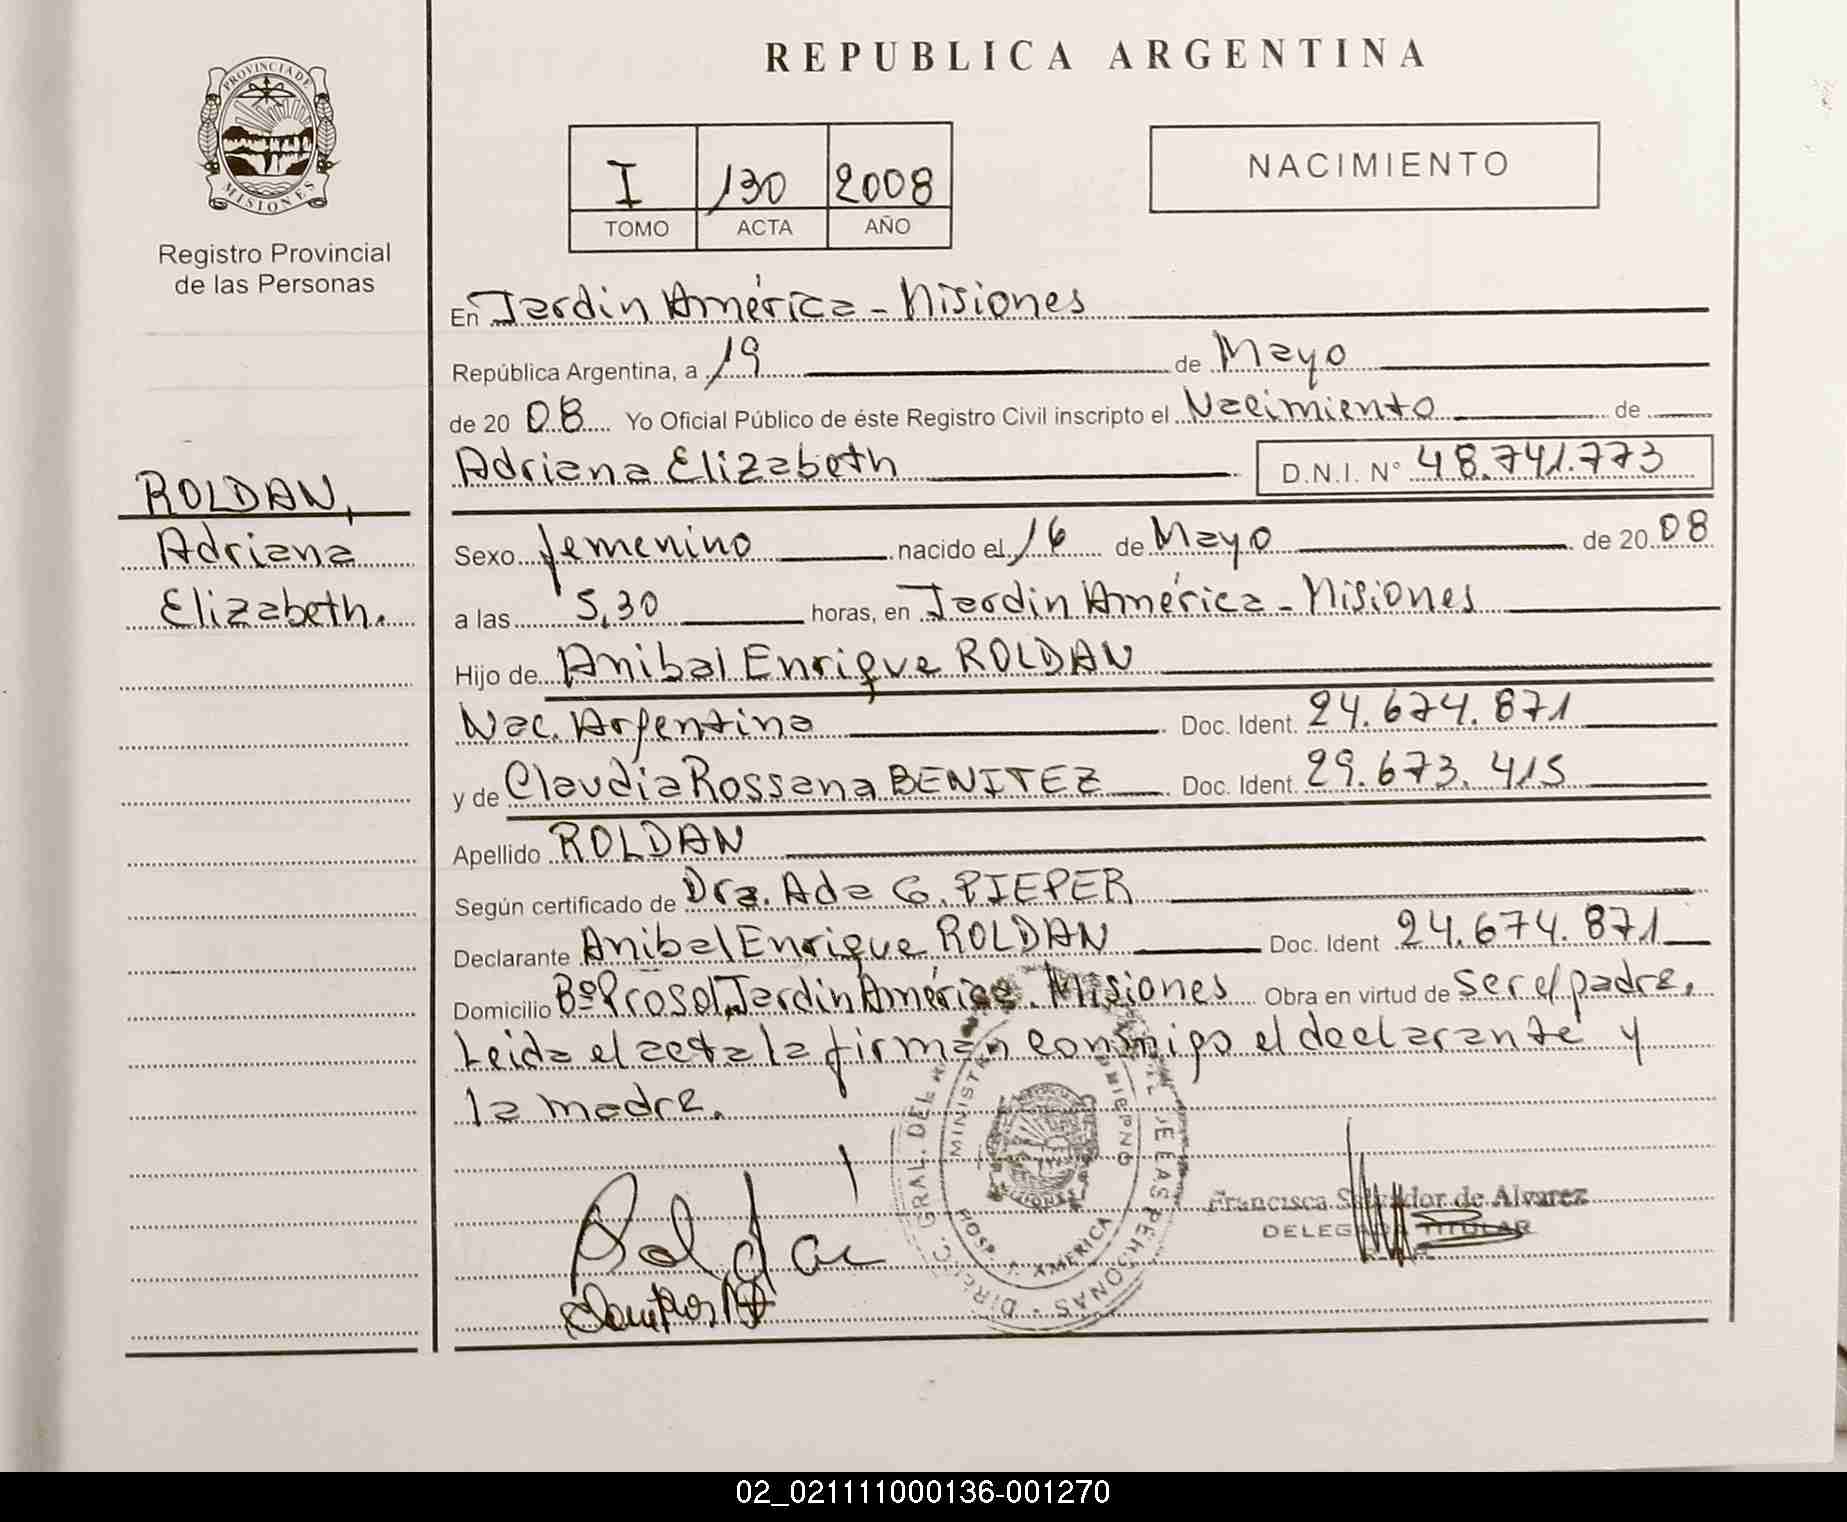 REPUBLICA ARGENTINA
PROVINCIA DE
MISIONES
Registro Provincial
de las Personas
I 130 2008
TOMO ACTA AÑO
NACIMIENTO
En Jardin América - Misiones
República Argentina, a 19 de Mayo
de 2008 Yo Oficial Público de éste Registro Civil inscripto el Nacimiento de
Adriana Elizabeth D.N.I. N° 48.741.773
ROLDAN,
Adriana
Elizabeth.
Sexo femenino nacido el 16 de Mayo de 2008
a las 5,30 horas, en Jardin América - Misiones
Hijo de Anibal Enrique ROLDAN
Nac. Argentina Doc. Ident. 24.674.871
y de Claudia Rossana BENITEZ Doc. Ident. 29.673.415
Apellido ROLDAN
Según certificado de Dra. Ada G. PIEPER
Declarante Anibal Enrique ROLDAN Doc. Ident 24.674.871
Domicilio Bº Prosol, Jardin América. Misiones Obra en virtud de ser el padre.
Leida el acta la firman conmigo el declarante y
la madre.
GRAL. DEL
PERSONAS
HOSP. J. AMERICA
MISIONES
Francisca Salvador de Alvarez
TITULAR
Roldan
02_021111000136-001270